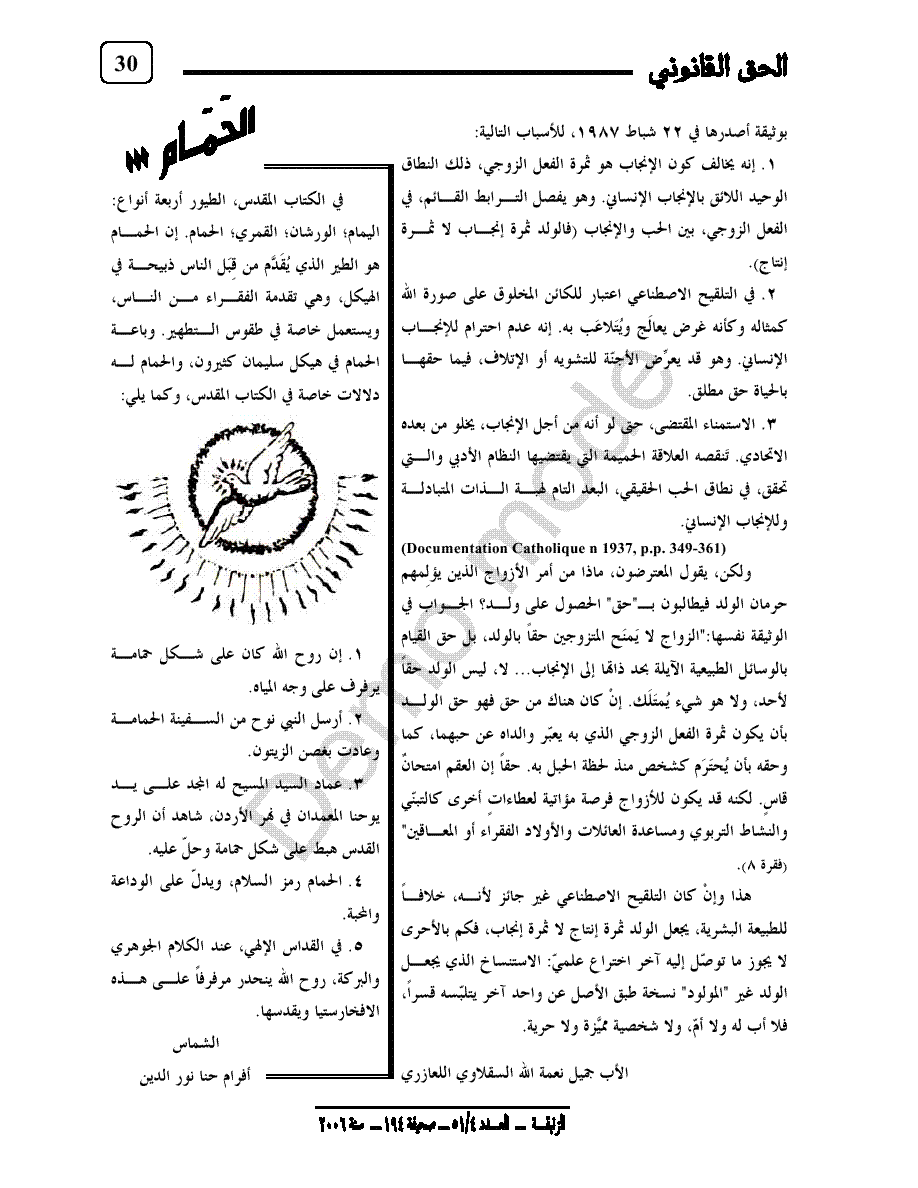 الحق القانوني
30
بوثيقة أصدرها في ٢٢ شباط ١٩٨٧، للأسباب التالية:
١. إنه يخالف كون الإنجاب هو ثمرة الفعل الزوجي، ذلك النطاق
الوحيد اللائق بالإنجاب الإنساني. وهو يفصل الترابط القائم، في
الفعل الزوجي، بين الحب والإنجاب (فالولد ثمرة إنجاب لا ثمرة
إنتاج).
٢. في التلقيح الاصطناعي اعتبار للكائن المخلوق على صورة الله
كمثاله وكأنه غرض يعالَج ويُتَلاعَب به. إنه عدم احترام للإنجاب
الإنساني. وهو قد يعرِّض الأجنّة للتشويه أو الإتلاف، فيما حقهـا
بالحياة حق مطلق.
٣. الاستمناء المقتضى، حتى لو أنه من أجل الإنجاب، يخلو من بعده
الاتحادي. تَنقصه العلاقة الحميمة التي يقتضيها النظام الأدبي والتي
تحقق، في نطاق الحب الحقيقي، البعد التام لهبة الذات المتبادلة
وللإنجاب الإنساني.
(Documentation Catholique n 1937, p.p. 349-361)
ولكن، يقول المعترضون، ماذا من أمر الأزواج الذين يؤلِمهم
حرمان الولد فيطالبون بـ"حق" الحصول على ولد؟ الجواب في
الوثيقة نفسها:"الزواج لا يَمنَح المتزوجين حقاً بالولد، بل حق القيام
بالوسائل الطبيعية الآيلة بحد ذاتها إلى الإنجاب... لا، ليس الولد حقاً
لأحد، ولا هو شيء يُمتَلَك. إنْ كان هناك من حق فهو حق الولد
بأن يكون ثمرة الفعل الزوجي الذي به يعبّر والداه عن حبهما، كما
وحقه بأن يُحتَرَم كشخص منذ لحظة الحبل به. حقاً إن العقم امتحانٌ
قاسٍ. لكنه قد يكون للأزواج فرصة مؤاتية لعطاءاتٍ أخرى كالتبنّي
والنشاط التربوي ومساعدة العائلات والأولاد الفقراء أو المعاقين"
(فقرة ٨).
هذا وإنْ كان التلقيح الاصطناعي غير جائز لأنه، خلافاً
للطبيعة البشرية، يجعل الولد ثمرة إنتاج لا ثمرة إنجاب، فكم بالأحرى
لا يجوز ما توصّل إليه آخر اختراع علميّ: الاستنساخ الذي يجعل
الولد غير "المولود" نسخة طبق الأصل عن واحد آخر يتلبّسه قسراً،
فلا أب له ولا أمّ، ولا شخصية مميَّزة ولا حرية.
الأب جميل نعمة الله السقلاوي اللعازري
الحَمَام
في الكتاب المقدس، الطيور أربعة أنواع:
اليمام؛ الورشان؛ القمري؛ الحمام. إن الحمام
هو الطير الذي يُقَدَّم من قِبَل الناس ذبيحة في
الهيكل، وهي تقدمة الفقراء من الناس،
ويستعمل خاصة في طقوس التطهير. وباعة
الحمام في هيكل سليمان كثيرون، والحمام له
دلالات خاصة في الكتاب المقدس، وكما يلي:
١. إن روح الله كان على شكل حمامة
يرفرف على وجه المياه.
٢. أرسل النبي نوح من السفينة الحمامة
وعادت بغصن الزيتون.
٣. عماد السيد المسيح له المجد على يد
يوحنا المعمدان في نهر الأردن، شاهد أن الروح
القدس هبط على شكل حمامة وحلّ عليه.
٤. الحمام رمز السلام، ويدلّ على الوداعة
والمحبة.
٥. في القداس الإلهي، عند الكلام الجوهري
والبركة، روح الله ينحدر مرفرفاً على هذه
الافخارستيا ويقدسها.
الشماس
أفرام حنا نور الدين
الزنبقة – العدد ٥١/٤ – صحيفة ١٩٤ – سنة ٢٠٠٦
Demo mode